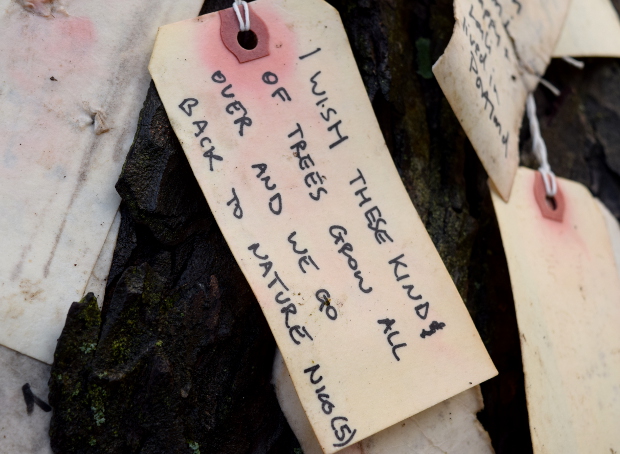 I WISH THESE KINDS
OF TREES GROW ALL
OVER AND WE GO
BACK TO NATURE NICO(5)
lived in
Portland